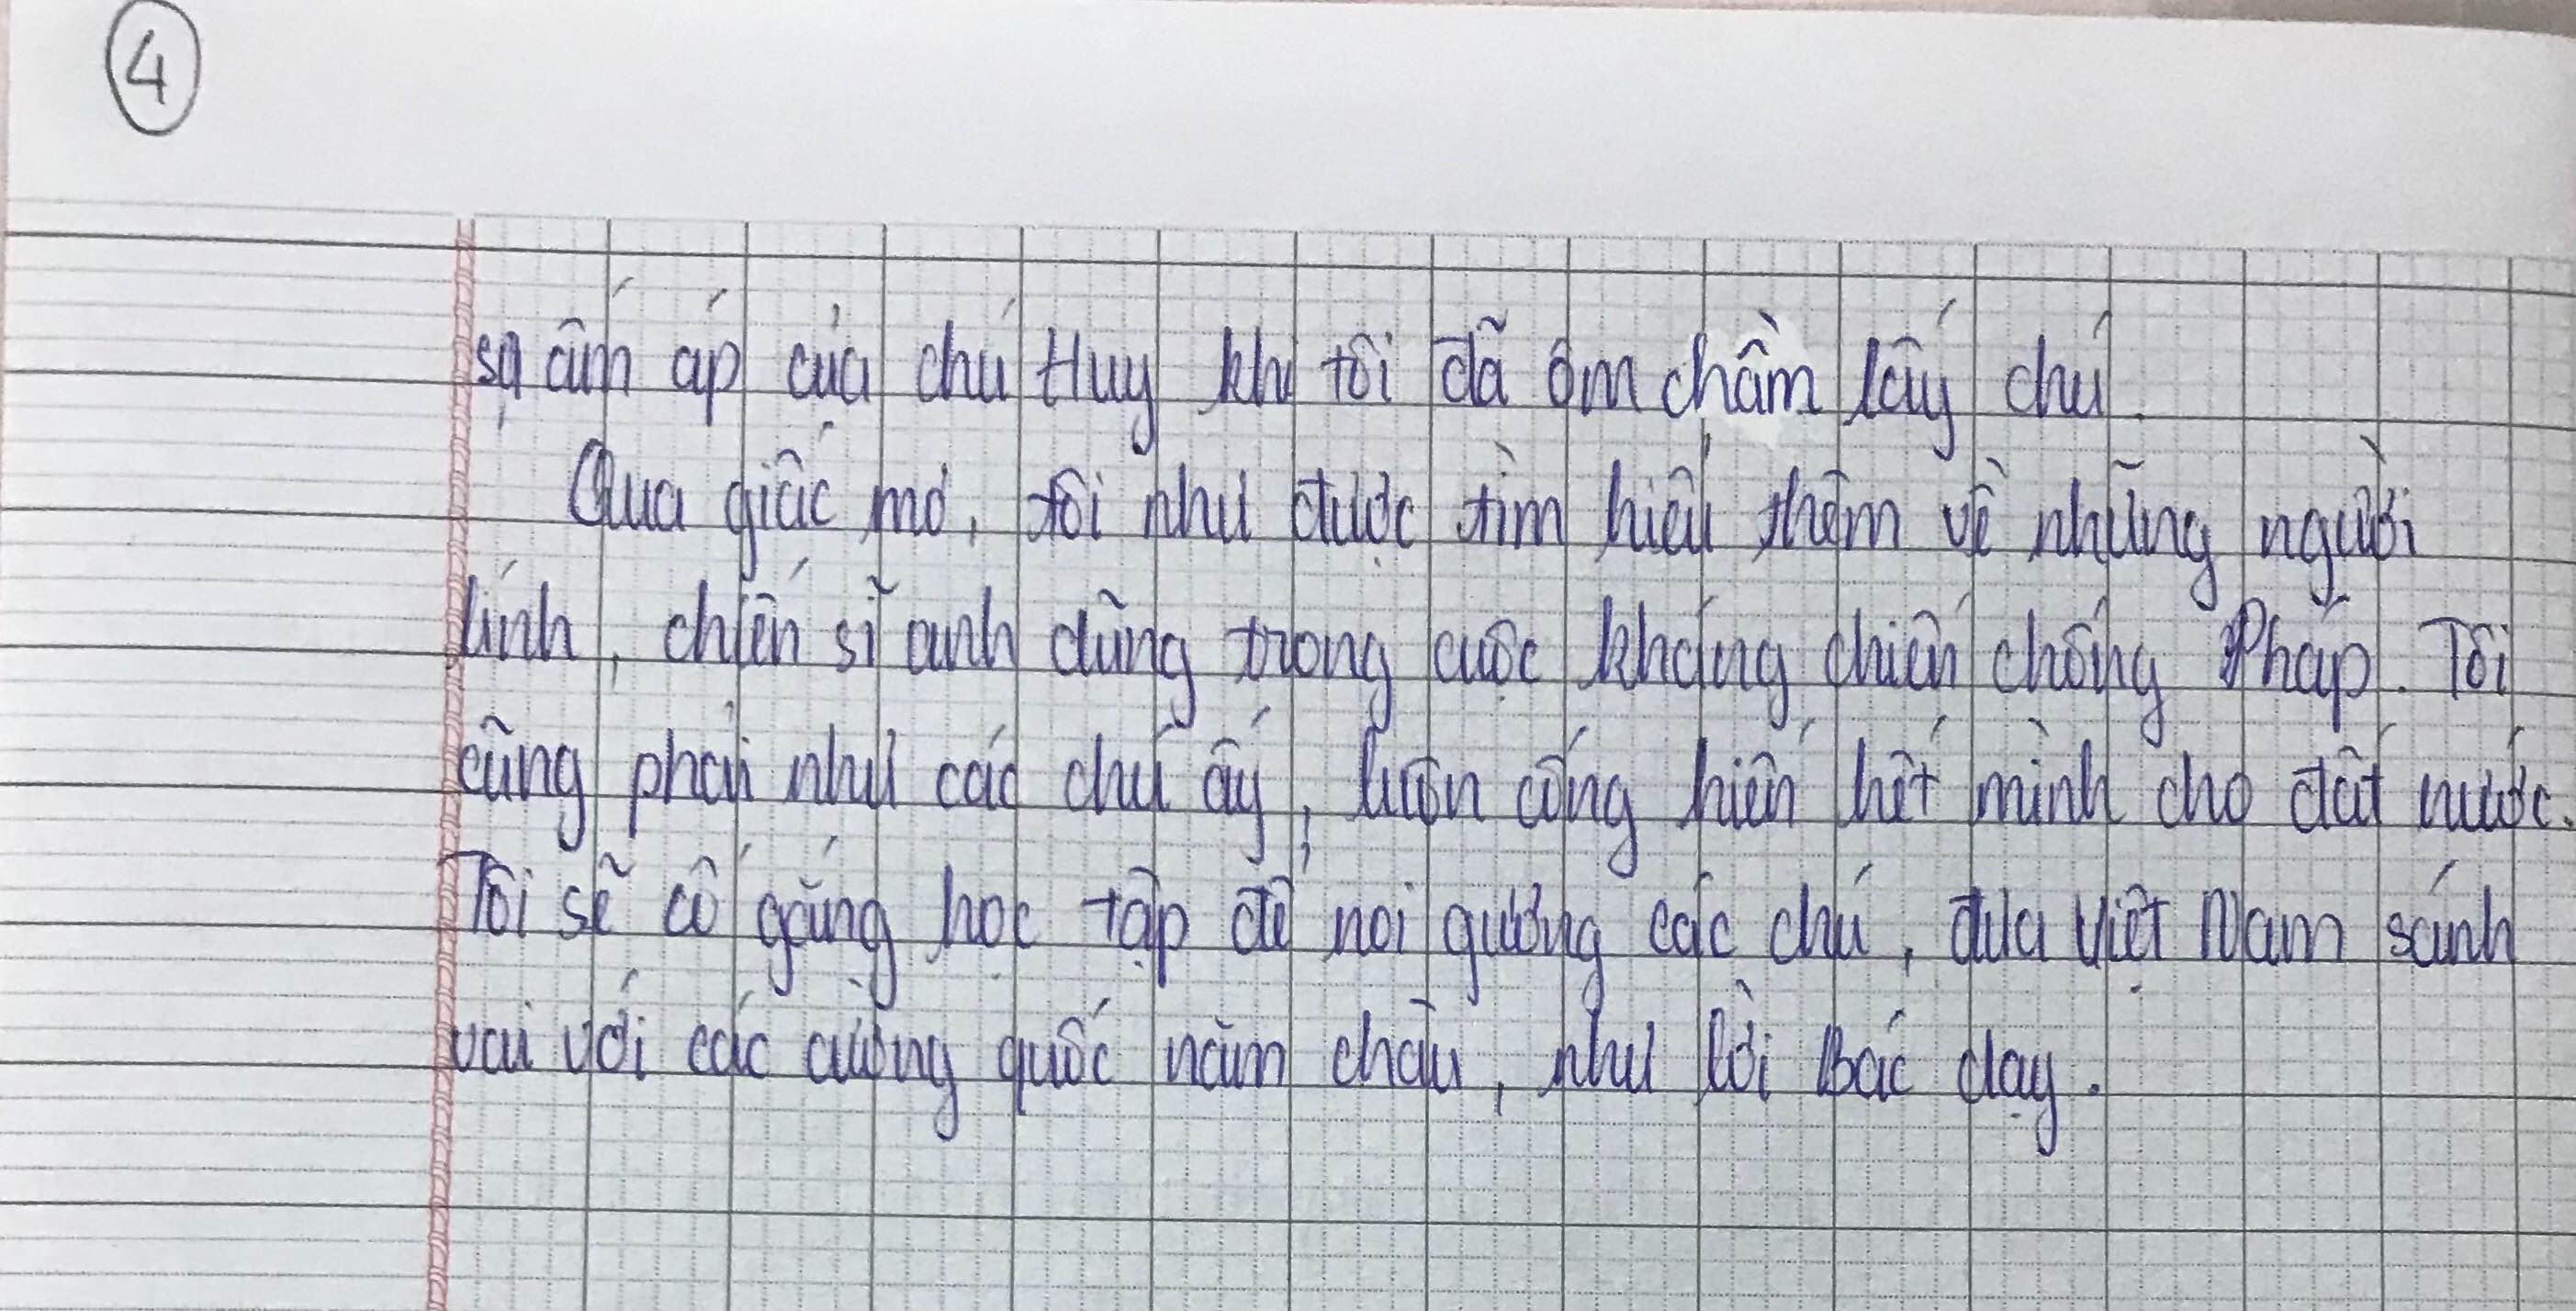 4
sự ấm áp của chú Huy khi tôi đã ôm chầm lấy chú.
Qua giấc mơ, tôi như được tìm hiểu thêm về những người
lính, chiến sĩ anh dũng trong cuộc kháng chiến chống Pháp. Tôi
cũng phải như các chú ấy, luôn cống hiến hết mình cho đất nước.
Tôi sẽ cố gắng học tập để noi gương các chú, đưa Việt Nam sánh
vai với các cường quốc năm châu, như lời Bác dạy.